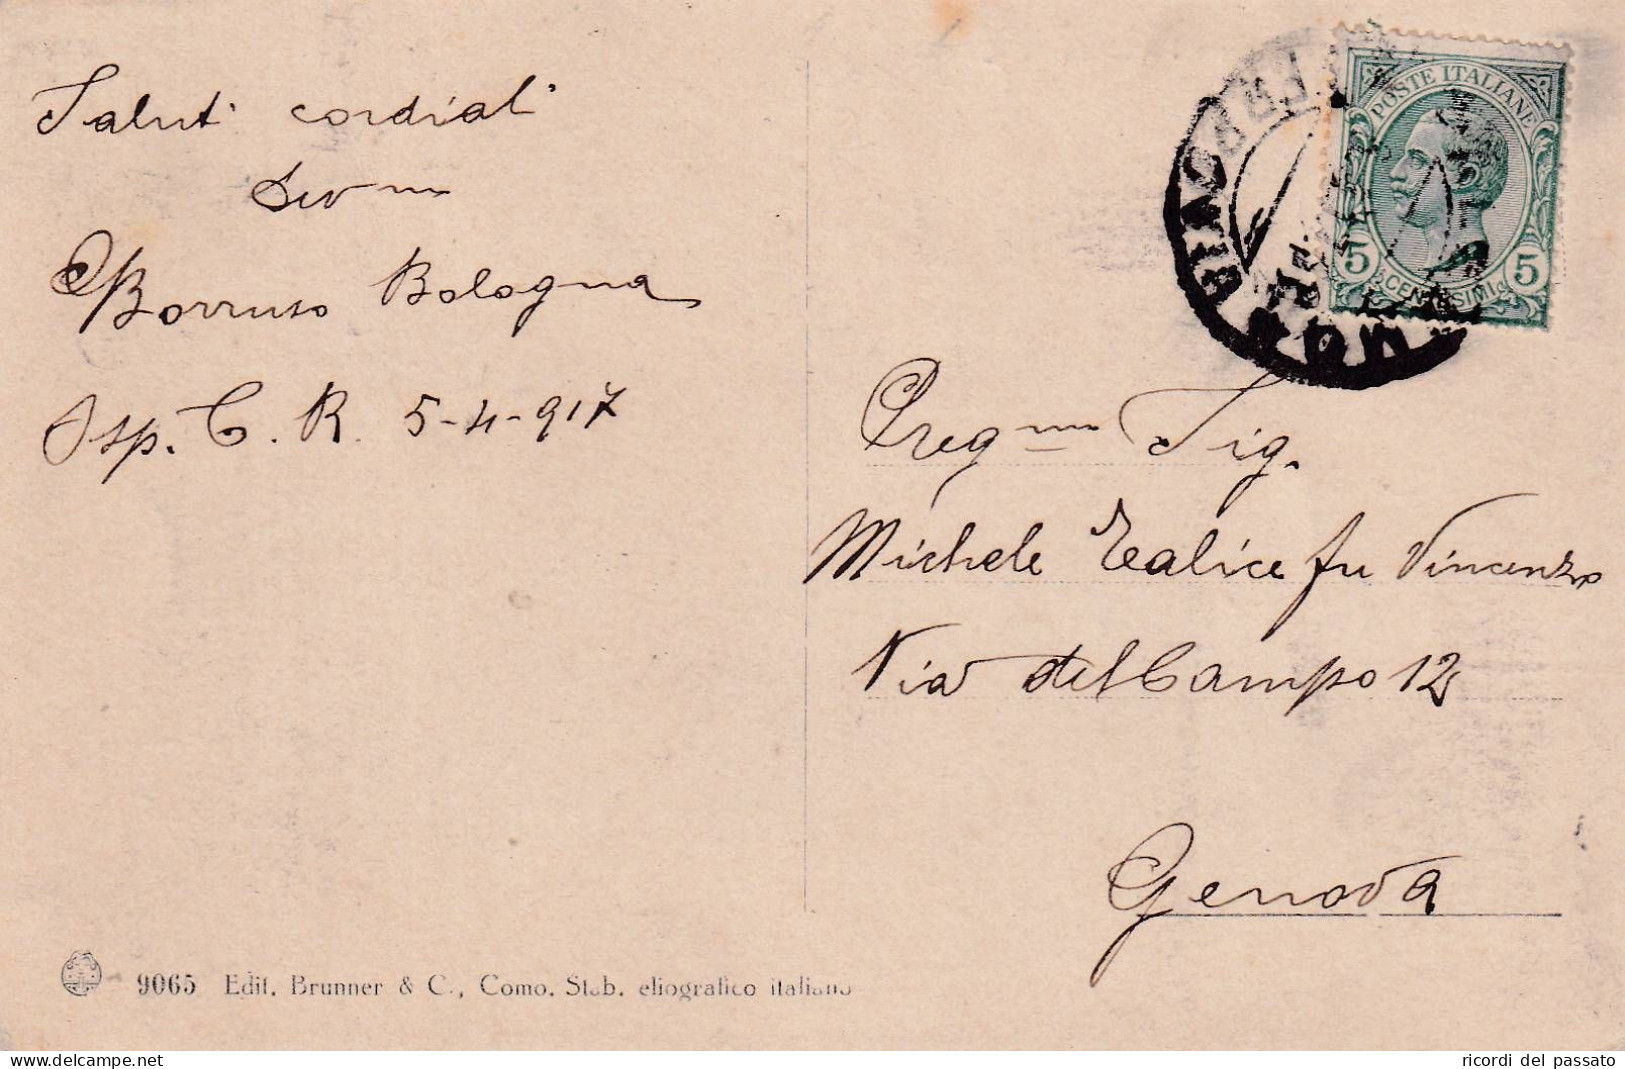 Saluti cordiali
Dev mo
Borruso Bologna
Osp. C. R. 5-4-917
POSTE ITALIANE
5 CENTESIMI 5
Preg mo Sig.
Michele Ealice fu Vincenzo
Via del Campo 12
Genova
9065 Edit. Brunner & C., Como. Stab. eliografico italiano
ricordi del passato
www.delcampe.net